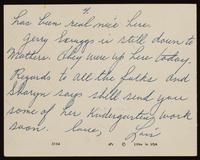 4
has been real nice here.
Jerry Scruggs is still down to
Mothers. They were up here today.
Regards to all the folks and
Sharyn says she'll send you
some of her Kindergarten work
soon. Love, Lis
3154
Litho in USA